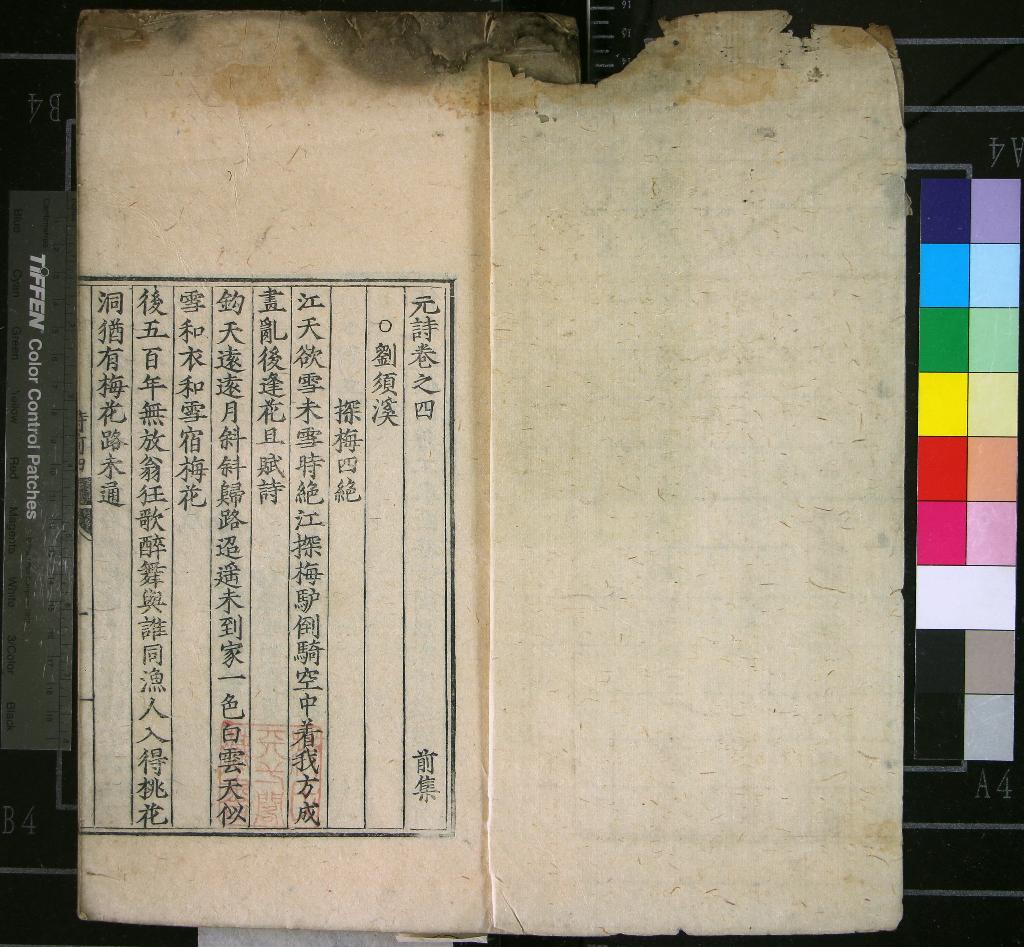 元詩卷之四 前集
○劉須溪
探梅四絶
江天欲雪未雪時絶江探梅馿倒騎空中着我方成
畫亂後逢花且賦詩
鈎天遠遠月斜斜歸路迢遥未到家一色白雲天似
雪和衣和雪宿梅花
後五百年無放翁狂歌醉舞與誰同漁人入得桃花
洞猶有梅花路未通
TIFFEN Color Control Patches
Blue Cyan Green Yellow Red Magenta White 3/Color Black
B4
A4
B4
A4